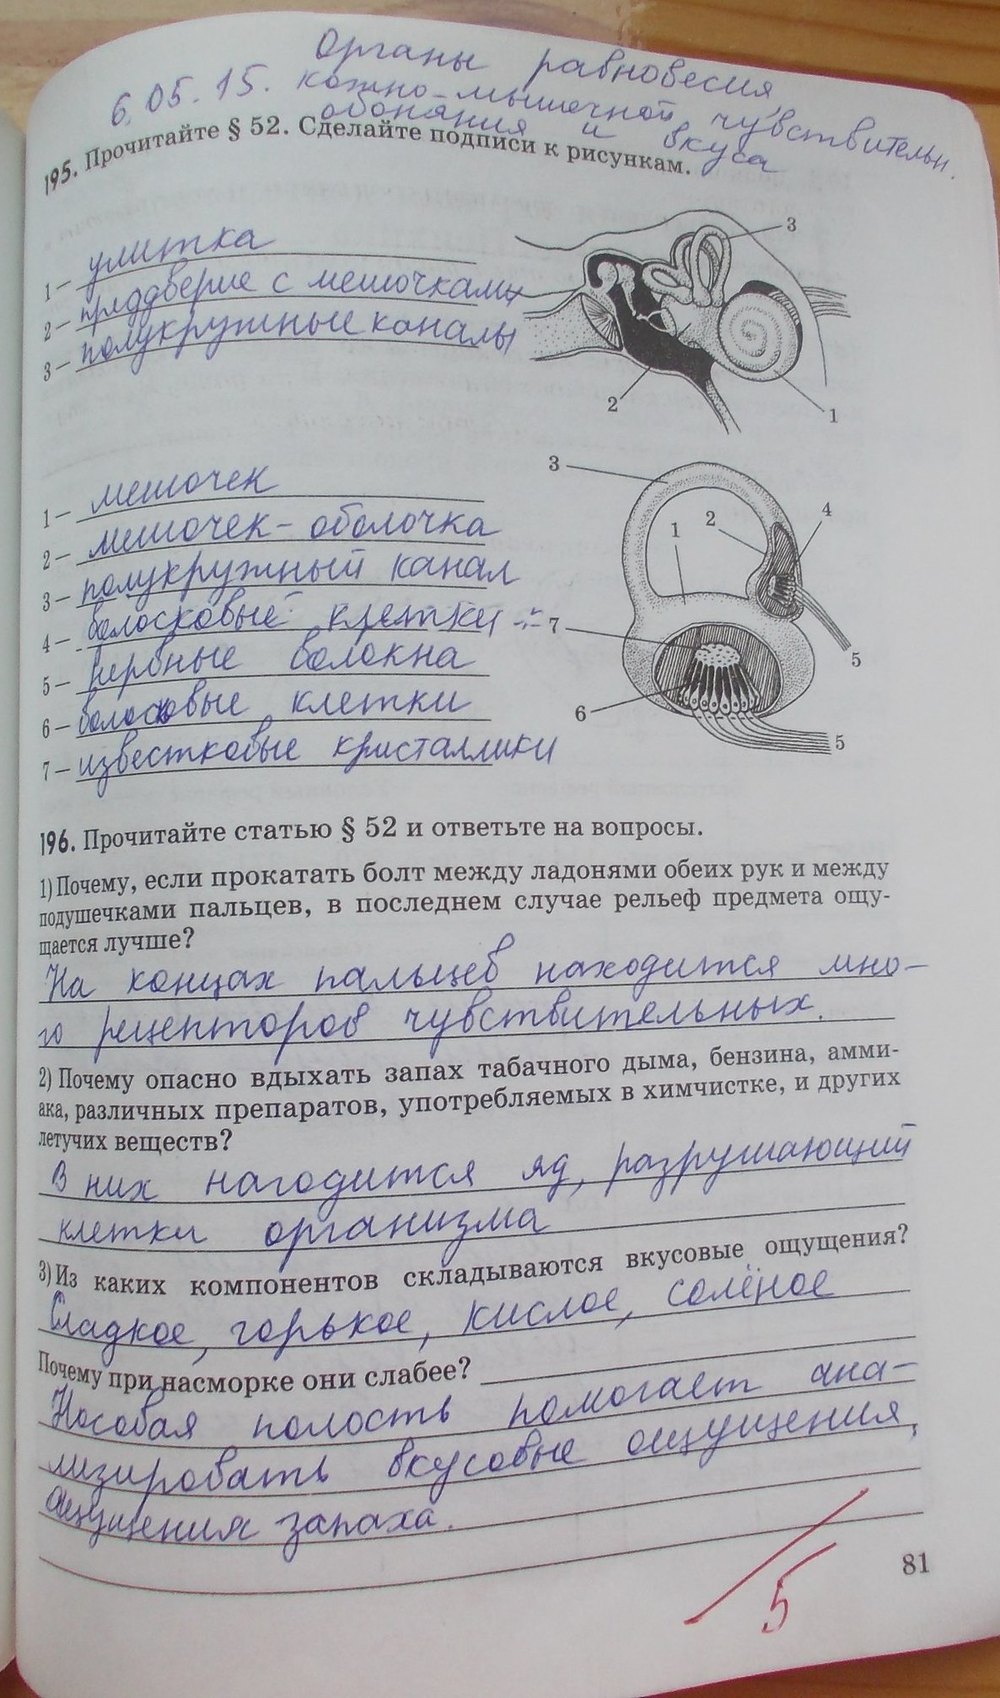 Органы равновесия,
6.05.15. кожно-мышечной чувствительн.
обоняния и вкуса
195. Прочитайте § 52. Сделайте подписи к рисункам.
1 – улитка
2 – преддверие с мешочками
3 – полукружные каналы
3
2
1
1 – мешочек
2 – мешочек - оболочка
3 – полукружный канал
4 – волосковые клетки
5 – нервные волокна
6 – волосковые клетки
7 – известковые кристаллики
3
1
2
4
7
5
6
5
196. Прочитайте статью § 52 и ответьте на вопросы.
1) Почему, если прокатать болт между ладонями обеих рук и между
подушечками пальцев, в последнем случае рельеф предмета ощу-
щается лучше?
На концах пальцев находится мно-
го рецепторов чувствительных.
2) Почему опасно вдыхать запах табачного дыма, бензина, амми-
ака, различных препаратов, употребляемых в химчистке, и других
летучих веществ?
В них нагодится яд, разрушающий
клетки организма
3) Из каких компонентов складываются вкусовые ощущения?
Сладкое, горькое, кислое, солёное
Почему при насморке они слабее?
Носовая полость помогает ана-
лизировать вкусовые ощущения,
ощущения запаха.
81
5